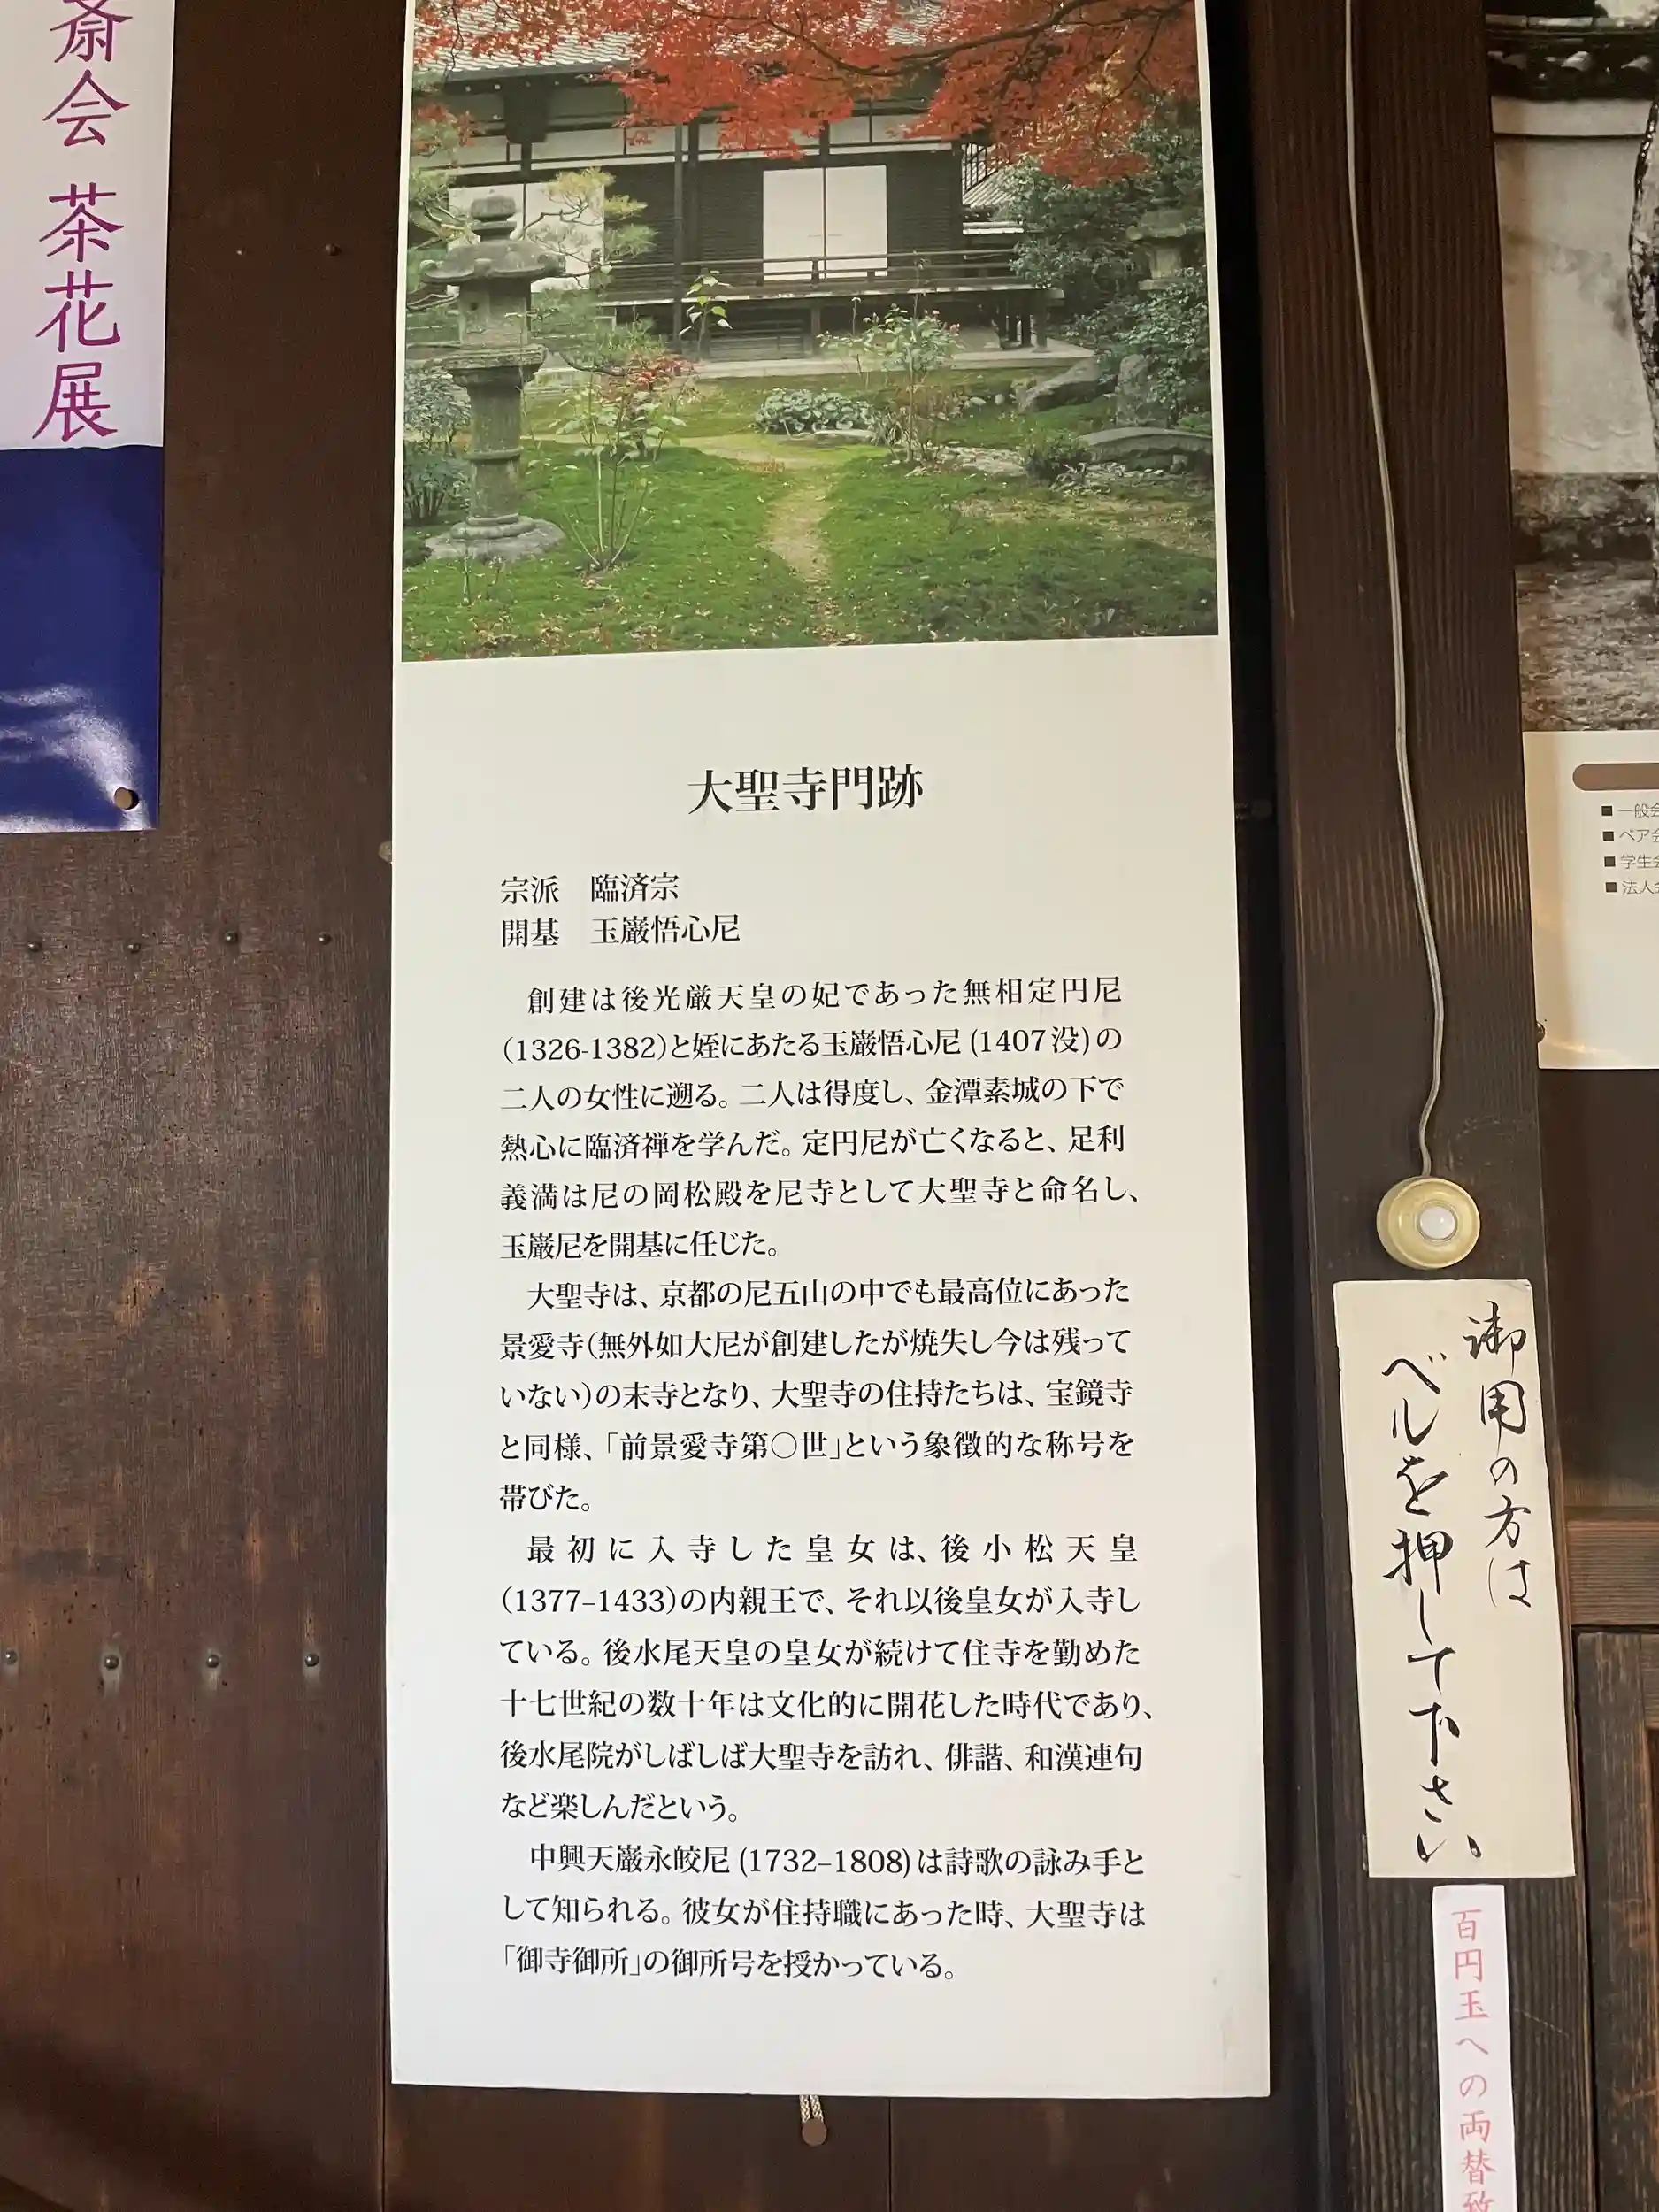 斎会 茶花展
大聖寺門跡
宗派　臨済宗
開基　玉巌悟心尼
創建は後光厳天皇の妃であった無相定円尼
（1326-1382）と姪にあたる玉巌悟心尼(1407没)の
二人の女性に遡る。二人は得度し、金潭素城の下で
熱心に臨済禅を学んだ。定円尼が亡くなると、足利
義満は尼の岡松殿を尼寺として大聖寺と命名し、
玉巌尼を開基に任じた。
大聖寺は、京都の尼五山の中でも最高位にあった
景愛寺（無外如大尼が創建したが焼失し今は残って
いない）の末寺となり、大聖寺の住持たちは、宝鏡寺
と同様、「前景愛寺第〇世」という象徴的な称号を
帯びた。
最初に入寺した皇女は、後小松天皇
（1377–1433）の内親王で、それ以後皇女が入寺し
ている。後水尾天皇の皇女が続けて住寺を勤めた
十七世紀の数十年は文化的に開花した時代であり、
後水尾院がしばしば大聖寺を訪れ、俳諧、和漢連句
など楽しんだという。
中興天巌永皎尼(1732–1808)は詩歌の詠み手と
して知られる。彼女が住持職にあった時、大聖寺は
「御寺御所」の御所号を授かっている。
御用の方は
ベルを押して下さい
百円玉への両替致
■一般会
■ペア会
■学生会
■法人会